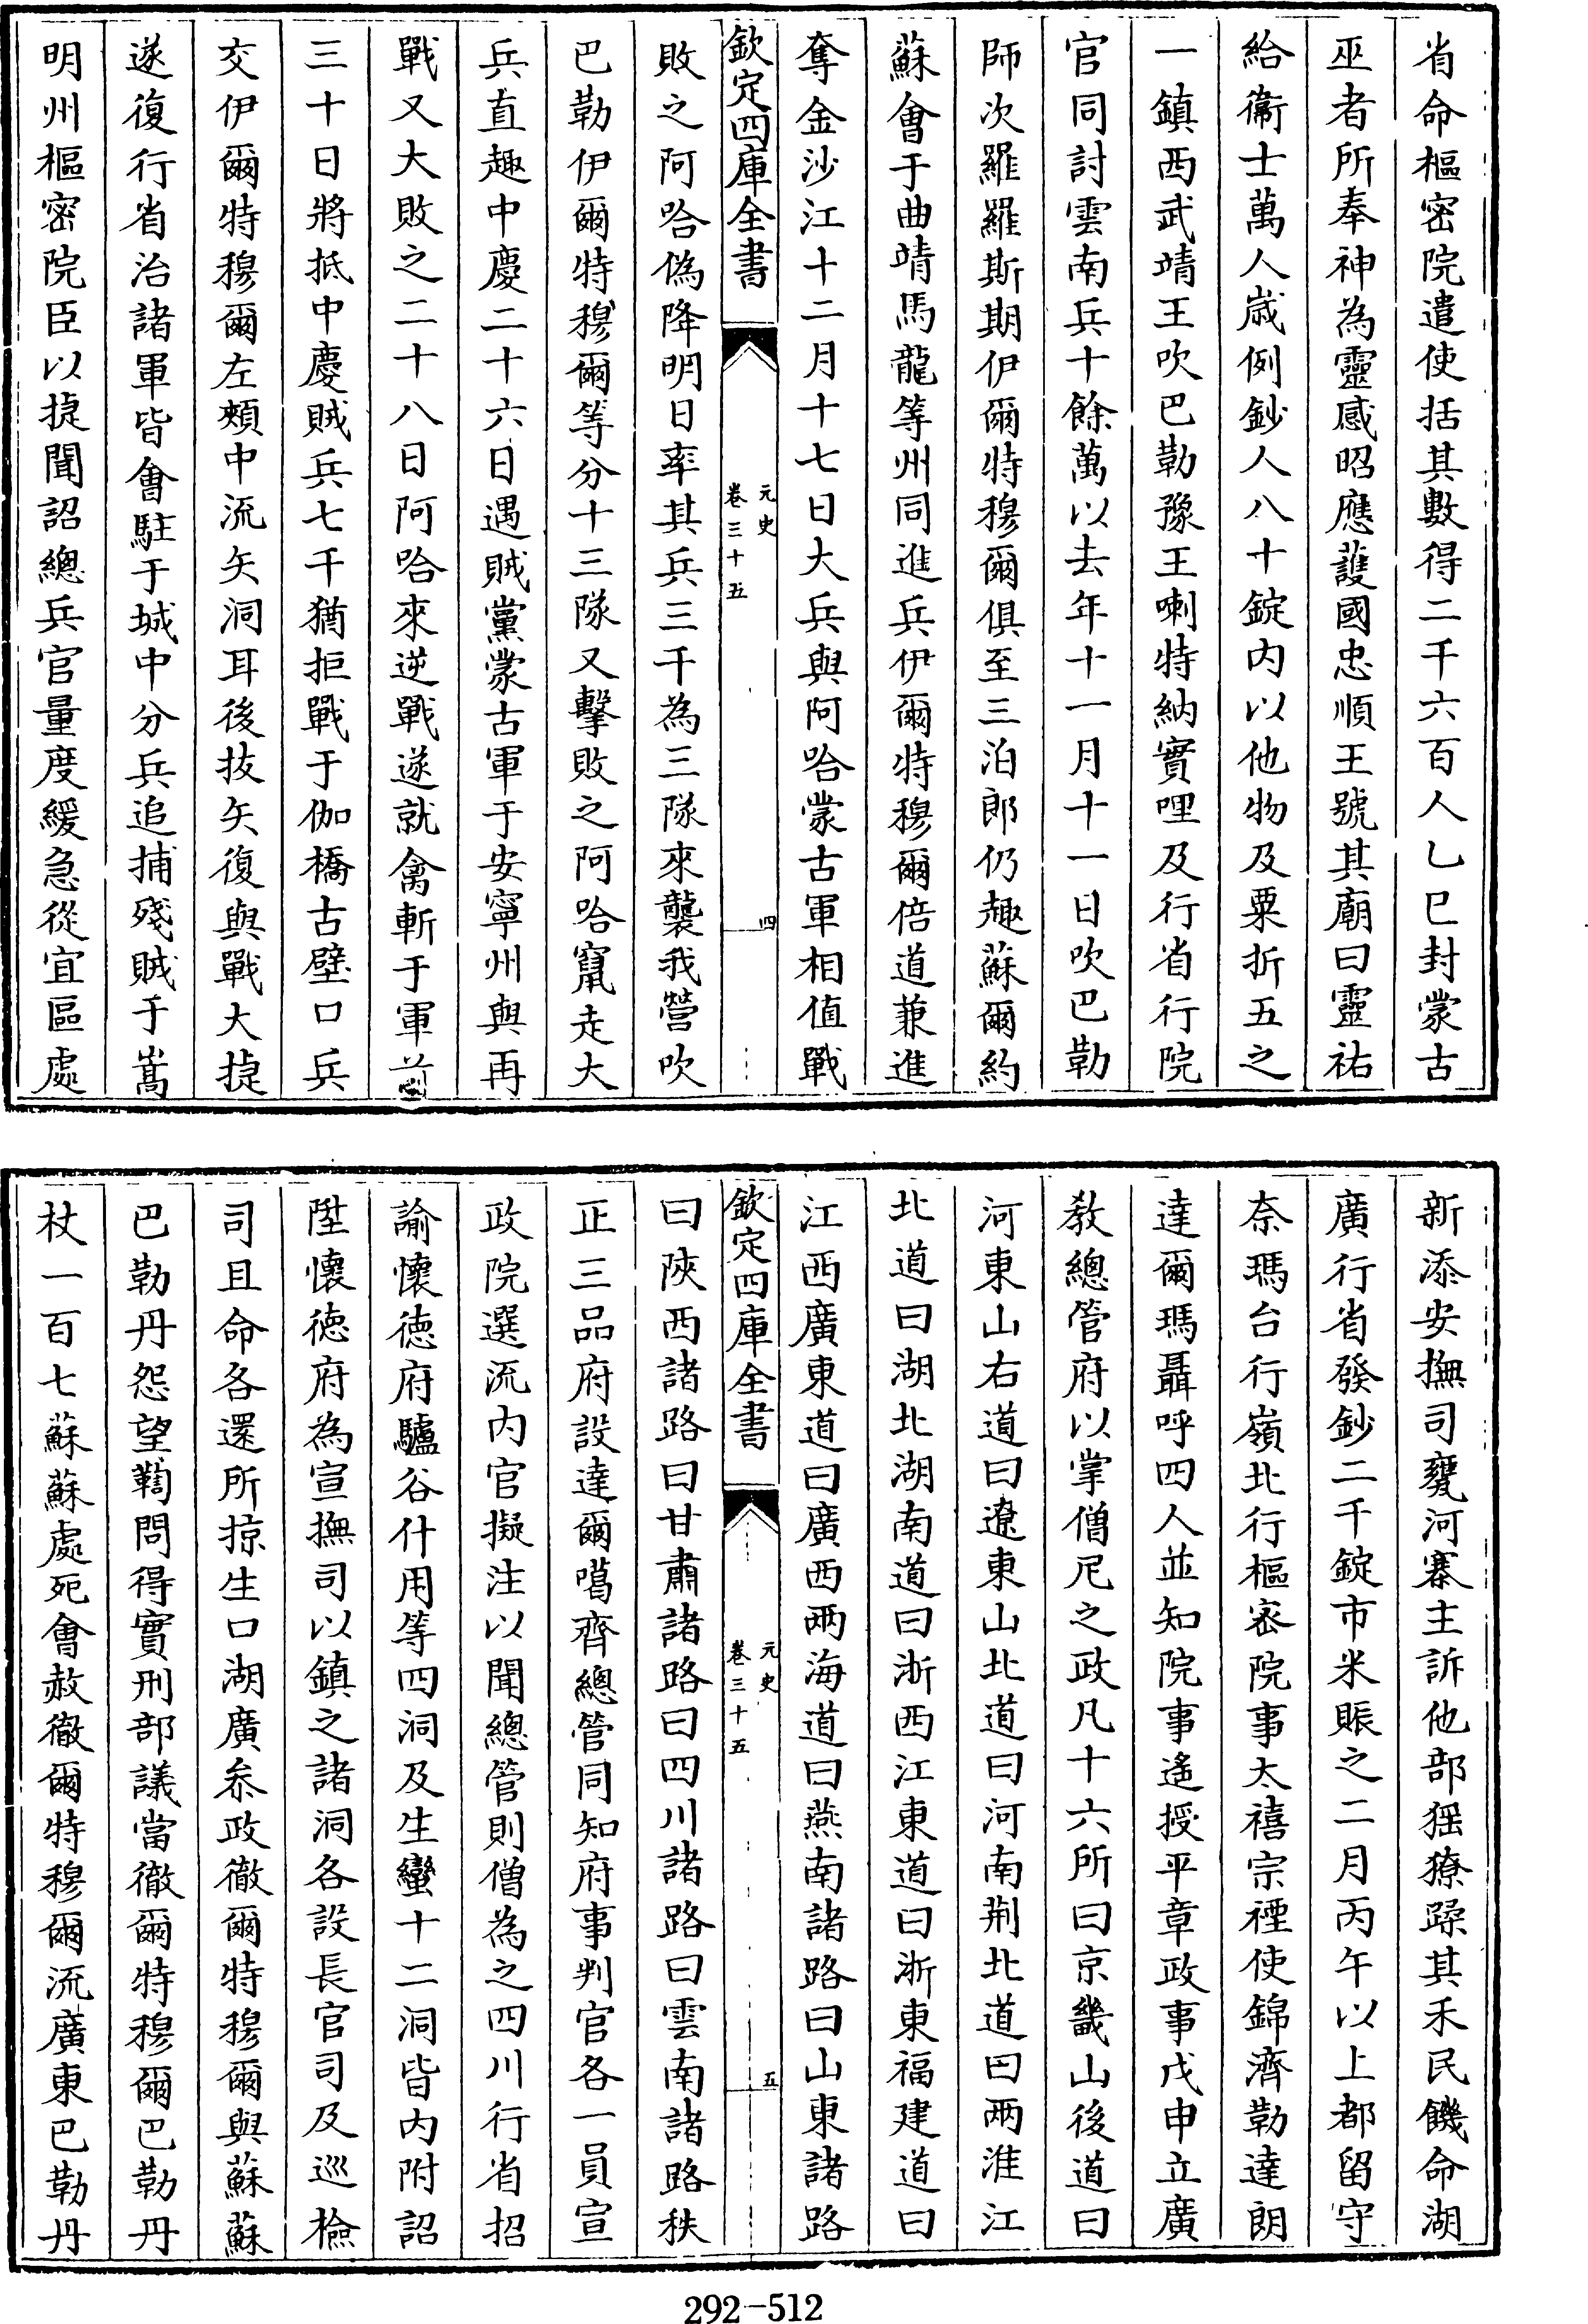 省命樞密院遣使括其數得二千六百人乙巳封蒙古
巫者所奉神為靈感昭應䕶國忠順王號其廟曰靈祐
給衞士萬人歳例鈔人八十錠内以他物及粟折五之
一鎮西武靖王吹巴勒豫王喇特納實哩及行省行院
官同討雲南兵十餘萬以去年十一月十一日吹巴勒
師次羅羅斯期伊爾特穆爾俱至三泊郎仍趣蘇爾約
蘇會于曲靖馬龍等州同進兵伊爾特穆爾倍道兼進
奪金沙江十二月十七日大兵與阿哈蒙古軍相值戰
欽定四庫全書
元史
卷三十五
四
敗之阿哈偽降明日率其兵三千為三隊來襲我營吹
巴勒伊爾特穆爾等分十三隊又擊敗之阿哈竄走大
兵直趣中慶二十六日遇賊黨蒙古軍于安寧州與再
戰又大敗之二十八日阿哈來逆戰遂就禽斬于軍前
三十日將抵中慶賊兵七千猶拒戰于伽橋古壁口兵
交伊爾特穆爾左頰中流矢洞耳後拔矢復與戰大捷
遂復行省治諸軍皆會駐于城中分兵追捕殘賊于嵩
明州樞密院臣以捷聞詔總兵官量度緩急從宜區處
新添安撫司甕河寨主訴他部猺獠蹂其禾民饑命湖
廣行省發鈔二千錠市米賑之二月丙午以上都留守
奈瑪台行嶺北行樞宻院事太禧宗禋使錦濟勒達朗
達爾瑪聶呼四人並知院事遙授平章政事戊申立廣
教總管府以掌僧尼之政凡十六所曰京畿山後道曰
河東山右道曰遼東山北道曰河南荆北道曰兩淮江
北道曰湖北湖南道曰浙西江東道曰浙東福建道曰
江西廣東道曰廣西兩海道曰燕南諸路曰山東諸路
欽定四庫全書
元史
卷三十五
五
曰陜西諸路曰甘肅諸路曰四川諸路曰雲南諸路秩
正三品府設達爾噶齊總管同知府事判官各一員宣
政院選流内官擬注以聞總管則僧為之四川行省招
諭懷徳府驢谷什用等四洞及生蠻十二洞皆内附詔
陞懷徳府為宣撫司以鎮之諸洞各設長官司及巡檢
司且命各還所掠生口湖廣叅政徹爾特穆爾與蘇蘇
巴勒丹怨望鞫問得實刑部議當徹爾特穆爾巴勒丹
杖一百七蘇蘇處死會赦徹爾特穆爾流廣東巴勒丹
292-512